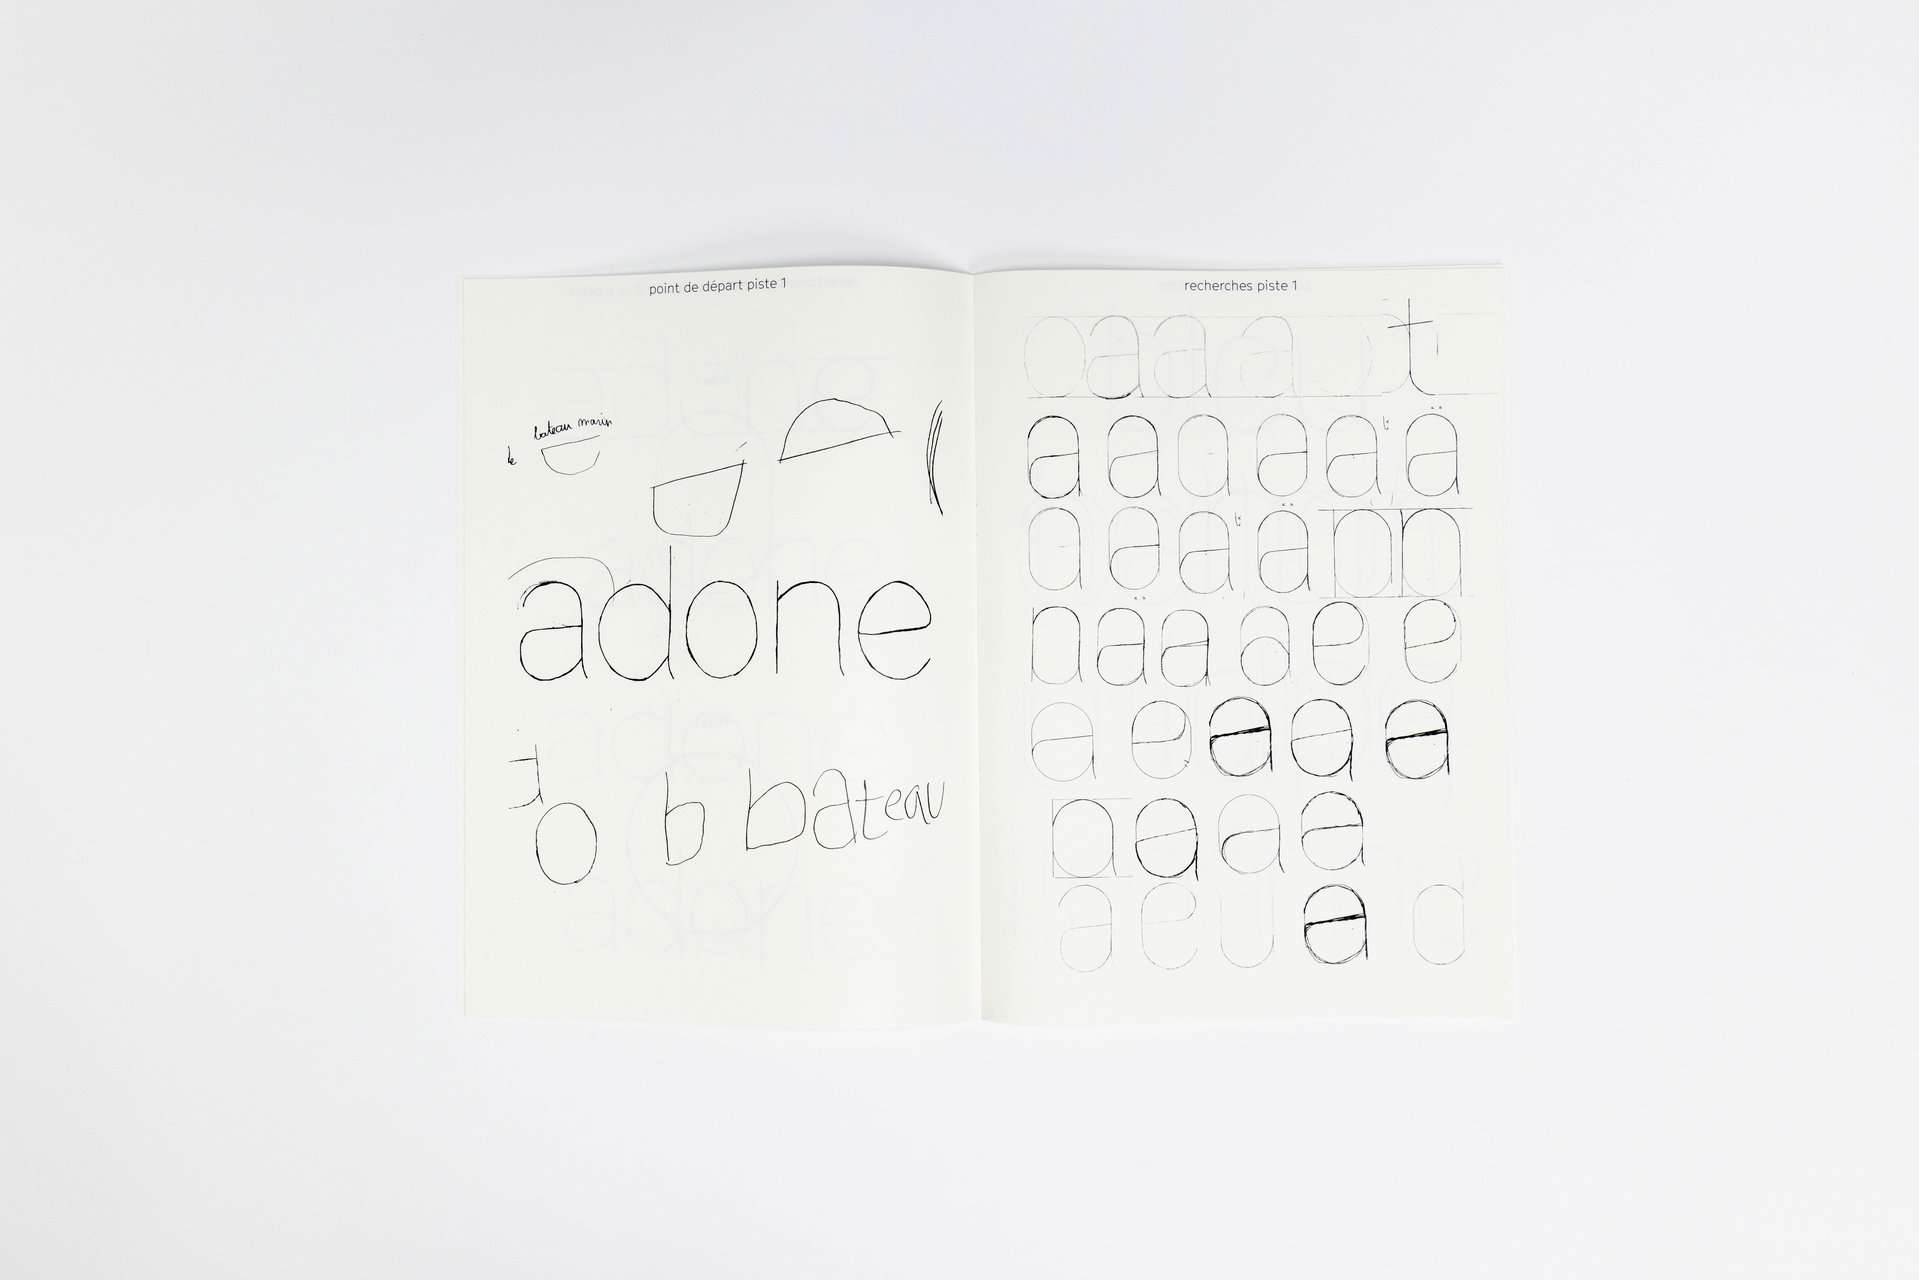 point de départ piste 1
bateau marin
le
adone
n
o b bateau
recherches piste 1
o a a a o t i
a a a a a a
a a a a n n
n a a a e e
a e a a a
a a a a
a e u a d